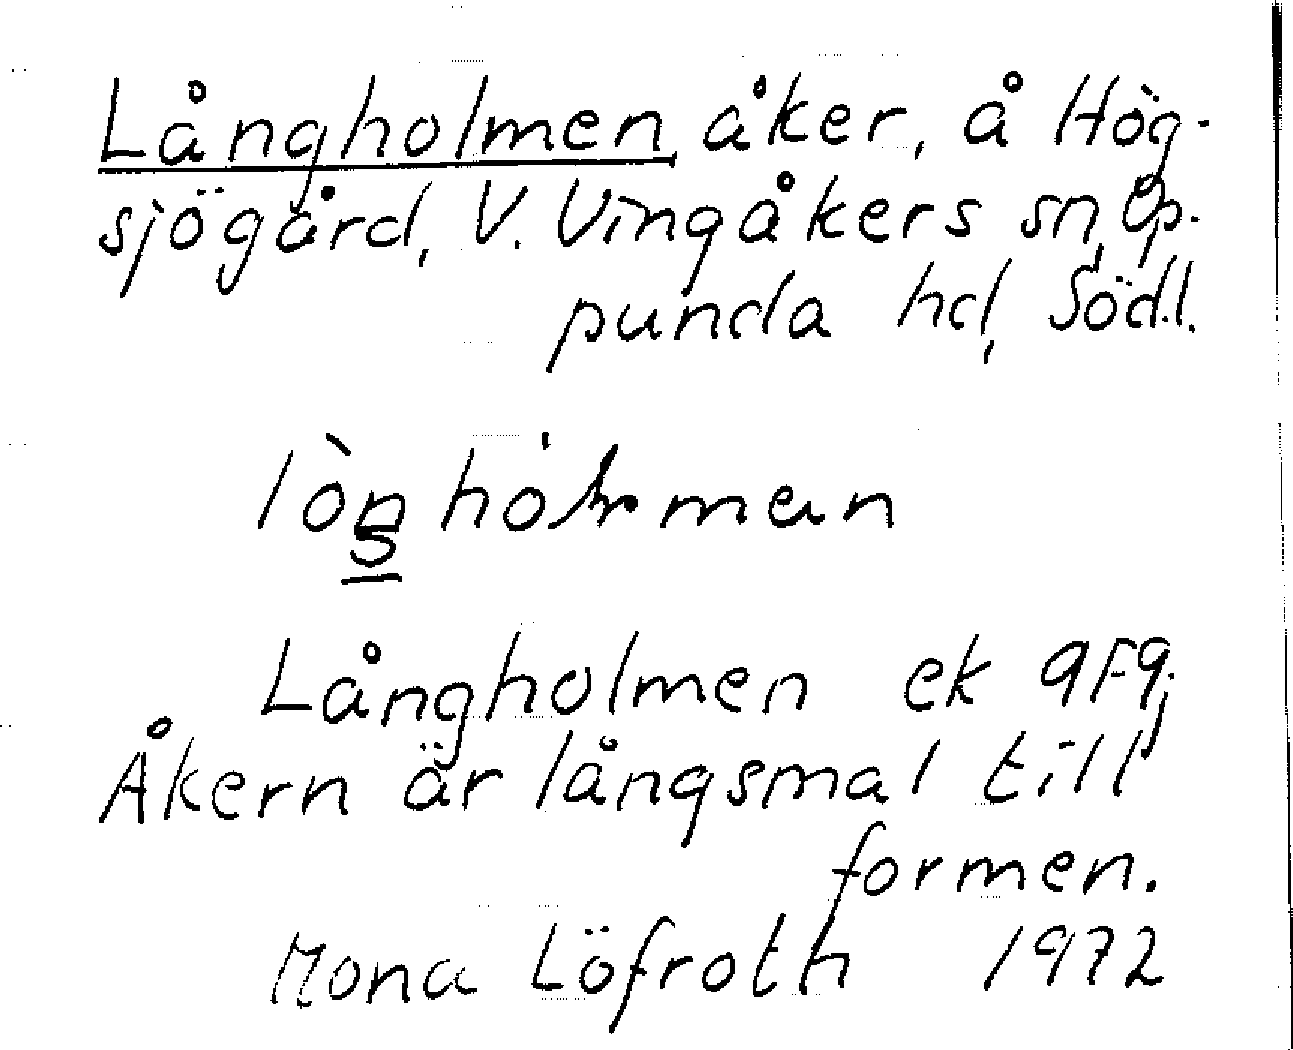 Långholmen, åker, å Hög-
sjögård, V. Vingåkers sn, Op-
punda hd, Södl.
Långholmen ek 9F9j
Åkern är långsmal till
formen.
Mona Löfroth 1972